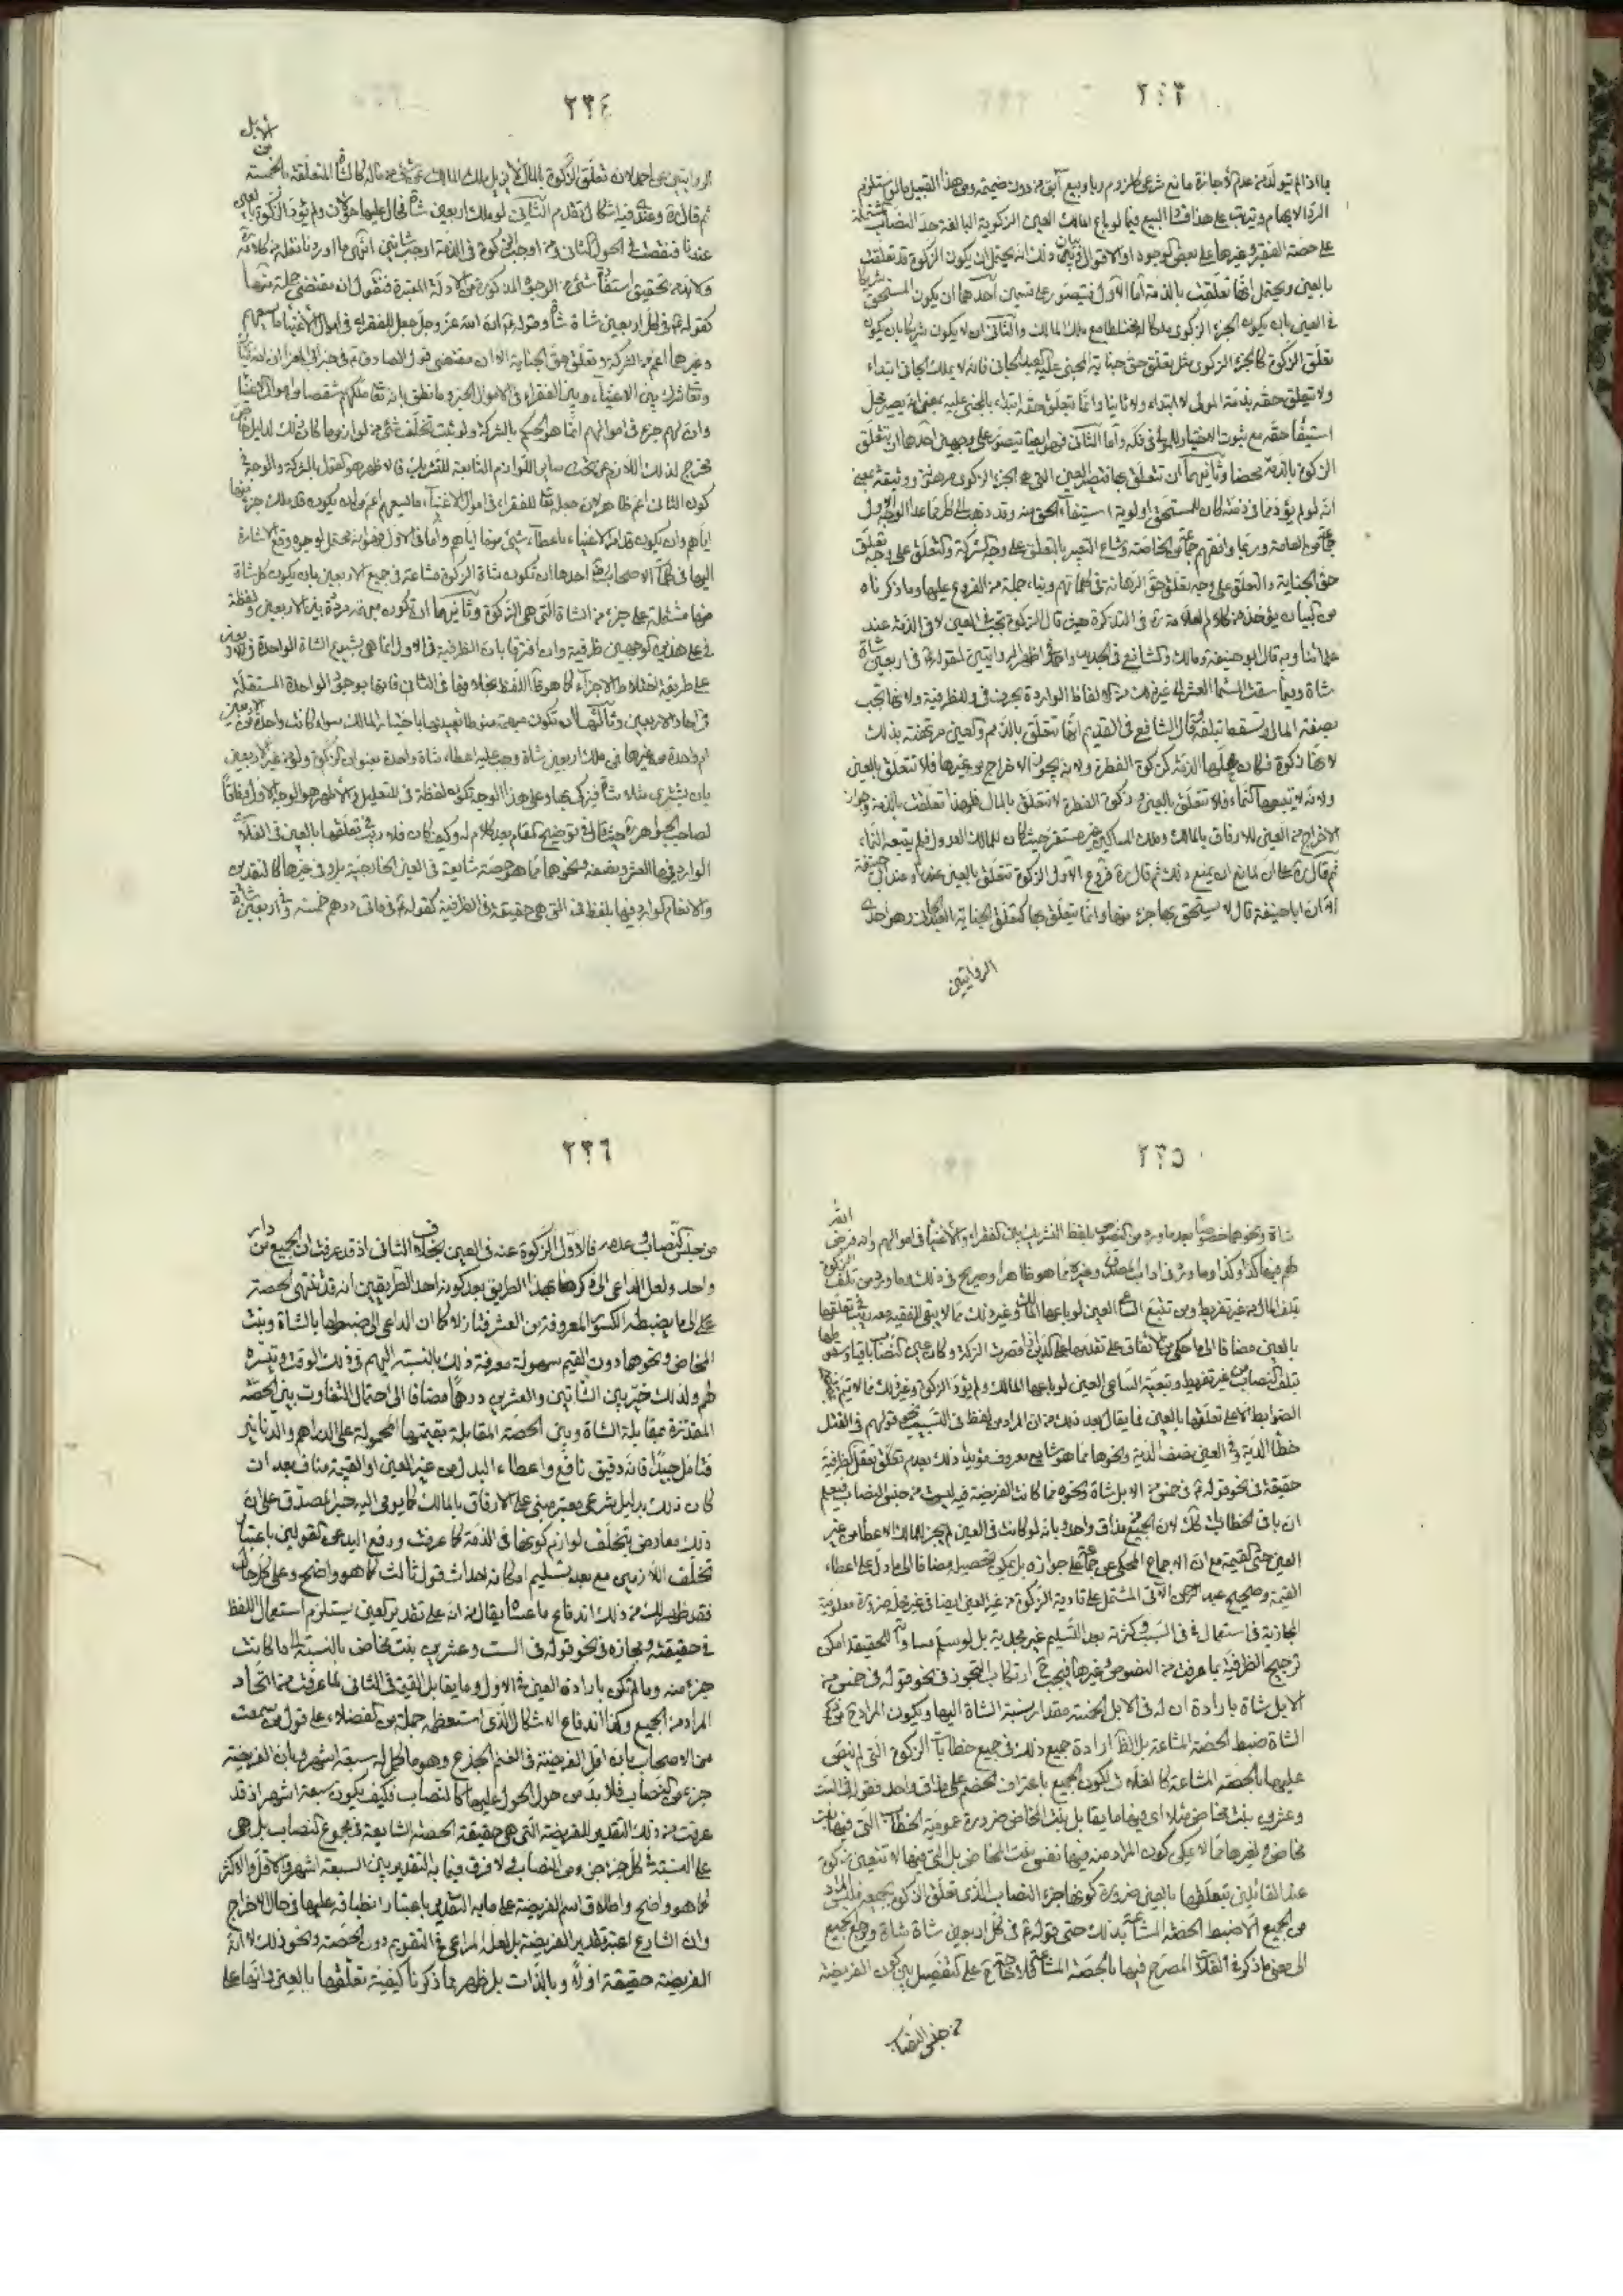 ٢٣٣
بما اذا لم يتولد من عدم الاجازة مانع شرعي كلزوم ربا وبيع آبق من دون ضميمة ومن هذا القبيل مالو استلزم
الرد الابهام ويترتب على هذا فساد البيع فيما لو باع المالك العين الزكوية البالغة حد النصاب مشتملة
على حصة الفقير وغيرها على بعض الوجوه او الاقوال وبيان ذلك انه يحتمل ان يكون الزكوة قد تعلقت
بالعين ويحتمل انها تعلقت بالذمة اما الاول فيتصور على قسمين احدهما ان يكون المستحق شريكا
في العين بان يكون الجزء الزكوى ملكا له مختلطا مع ملك المالك والثاني ان لا يكون شريكا بان يكون
تعلق الزكوة كالجزء الزكوى مثل تعلق حق جناية المجنى عليه بالعبد الجاني فانه لا يملك الجاني ابتداء
ولا يتعلق حقه بذمة المولى لا ابتداء ولا ثانيا وانما يتعلق حقه ابتداء بالمجنى عليه بمعنى انه يصير محل
استيفاء حقه مع ثبوت الاختيار للمولى في فكه واما الثاني فهو ايضا يتصور على وجهين احدهما ان يتعلق
الزكوة بالذمة محضا وثانيهما ان تتعلق بها فتصير العين التي هي الجزء الزكوى مرهنة ووثيقة بمعنى
انه لو لم يؤد مما في ذمته كان للمستحق اولوية استيفاء الحق منه وقد ذهب الى كل مما عدا الوجه الاول
جماعة من العامة وربما وافقهم جماعة من الخاصة وشاع التعبير بالتعلق على وجه الشركة والتعلق على وجه تعلق
حق الجناية والتعلق على وجه تعلق حق الرهانة في كلماتهم وبناء جملة من الفروع عليها وما ذكرناه
من البيان يؤخذ من كلام العلامة ره في التذكرة حيث قال الزكوة تجب في العين لا في الذمة عند
علمائنا وبه قال ابو حنيفة ومالك والشافعي في الجديد واحمد في اظهر الروايتين لقوله ع في اربعين شاة
شاة وفيما سقت السماء العشر الى غير ذلك من الالفاظ الواردة بحرف في وللظرفية ولانها تجب
بصفة المال وتسقط بتلفه وقال الشافعي في القديم انها تتعلق بالذمم والعين مرتهنة بذلك
لانها زكوة فكان محلها الذمة كزكوة الفطرة ولانه يجوز الاخراج من غيرها فلا تتعلق بالعين
ولانه لا يتبعها النماء فلا تتعلق بالعين وزكوة الفطرة لا تتعلق بالمال فلهذا تعلقت بالذمة وجواز
الاخراج من العين للارفاق بالمالك وملك المساكين غير مستقر حيث كان للمالك العدول فلم يتبعه النماء
ثم قال ره على ان لمانع ان يمنع ذلك ثم قال ره فروع الاول الزكوة تتعلق بالعين عندنا وعند ابي حنيفة
الا ان ابا حنيفة قال لا يستحق بها جزء منها وانما يتعلق بها كتعلق الجناية بالعبد الجاني وهو احدى
الروايتين
٢٣٤
الروايتين عن احمد لان تعلق الزكوة بالمال لا يزيل ملك المالك عن شئ من ماله كالشاة المتعلقة بالخمسة من الابل
ثم قال ره وعندي فيه اشكال تقدم الثاني لو ملك اربعين شاة فحال عليها حولان ولم يؤد الزكوة بالعين
عندنا فنقصت في الحول الثاني ومن اوجب الزكوة في الذمة اوجب شاتين انتهى ما اوردنا نقله من كلامه
ولا بد من تحقيق استفادة شئ من الوجوه المذكورة من الادلة المعتبرة فنقول ان مقتضى جملة منها
كقوله ع في كل اربعين شاة شاة وقوله ع ان الله عز وجل جعل للفقراء في اموال الاغنياء ما يسعهم
وغيرها اعم من الشركة وتعلق حق الجناية الا ان مقتضى قول الصادق ع في خبر ابي المعزا ان الله تبارك
وتعالى اشرك بين الاغنياء وبين الفقراء في الاموال الخبر وما نطق بانه تعالى ملكهم شقصا من اموال الاغنيا
وان لهم جزء في اموالهم انما هو الحكم بالشركة ولو ثبت تخلف شئ من لوازمها كان ذلك لدليل خاص
مخرج لذلك اللازم عن تحت ساير اللوازم التابعة للتشريك فالاظهر هو القول بالشركة والوجه في
كون الثاني اعم ظاهر لان جعله تعالى للفقراء في اموال الاغنياء ما يسعهم اعم من ان يكون قد ملك جزء منها
اياهم وان يكون قد امر الاغنياء باعطاء شئ منها اياهم واما في الاول فهو انه محتمل لوجوه وقع الاشارة
اليها في كلمات الاصحاب احدها ان تكون شاة الزكوة مشاعة في جميع الاربعين بان يكون كل شاة
منها مشتملة على جزء من الشاة التي هي الزكوة وثانيهما ان تكون مبهمة مرددة بين الاربعين ولفظة
في على هذين الوجهين ظرفية وان افترقا بان الظرفية في الاول انما هي بشيوع الشاة الواحدة في الاربعين
على طريقة اختلاط الاجزاء كما هو ظاهر اللفظ بخلافها في الثاني فانها بوجود الواحدة المستقلة
في احاد الاربعين وثالثها ان تكون مبهمة منوطا تعيينها باختيار المالك سواء كانت واحدة من الاربعين
ام واحدة من غيرها فمن ملك اربعين شاة وجب عليه اعطاء شاة واحدة بعنوان الزكوة ولو من غير الاربعين
بان يشترى مثلا شاة فيزكي بها وعلى هذا الوجه تكون لفظة في للتعليل والاظهر هو الوجه الاول وفاقا
لصاحب الجواهر ره حيث قال في توضيح المقام بعد كلام له وكيف كان فلا ريب في تعلقها بالعين في الغلات
الوارد فيها العشر ونصفه ونحوهما مما هو حصة شايعة في العين الخارجية بل وفي غيرها كالنقدين
والانعام الوارد فيها بلفظ في التي هي حقيقة في الظرفية كقوله ع في مائتي درهم خمسة وفي اربعين شاة
٢٣٥
شاة ونحوهما خصوصا بعد ما ورد من النصوص بلفظ التشريك بين الفقراء والاغنياء في اموالهم وان الله فرض
لهم فيها كذا وكذا وما ورد في اداب المصدق وغيره مما هو ظاهر او صريح في ذلك وما ورد من تلف الزكوة
بتلف المال من غير تفريط ومن تتبع الساعي العين لو باعها المالك وغير ذلك مما لا يبقى للفقيه معه ريب في تعلقها
بالعين مضافا الى ما حكي من الاتفاق على تقديمها على الدين اذا قصرت التركة وكان عين النصاب باقيا وسقوطها
بتلف النصاب من غير تفريط وتبعية الساعي العين لو باعها المالك ولم يؤد الزكوة وغير ذلك مما لا يتم
الضوابط الا على تعلقها بالعين فما يقال بعد ذلك من ان المراد من لفظ في التسبيب نحو قولهم في القتل
خطأ الدية وفي العين نصف الدية ونحوهما مما هو شايع معروف مؤيدا ذلك بعدم تعقل الظرفية
حقيقة في نحو قوله ع في خمس من الابل شاة ونحوه مما كانت الفريضة فيه ليست من جنس النصاب فيعلم
ان باقي الخطابات كذلك لان الجميع مذاق واحد وبانه لو كانت في العين لم يجز للمالك الاعطاء من غير
العين حتى القيمة مع ان الاجماع المحكي عن جماعة على جوازه بل يمكن تحصيله مضافا الى ما دل على اعطاء
القيمة وصحيح عبد الرحمن الاتي المشتمل على تادية الزكوة من غير العين ايضا في غير محله ضرورة معلومية
المجازية في استعمال في في السبب وكثرته بعد التسليم غير مجدية بل لو سلم مساواته للحقيقة امكن
ترجيح الظرفية بما عرفت من النصوص وغيرها فيجب ح ارتكاب التجوز في نحو قوله في خمس من
الابل شاة بارادة ان له في الابل الخمسة مقدار نسبة الشاة اليها ويكون المراد ح من
الشاة ضبط الحصة المشاعة بل الظاهر ارادة جميع ذلك في جميع خطابات الزكوة التي لم ينص
عليها بالحصة المشاعة كالغلات لكون الجميع باعتراف الخصم على مذاق واحد فقوله في الست
وعشرين بنت مخاض مثلا اي فيها ما يقابل بنت المخاض ضرورة عمومية الخطاب التي فيها بنت
مخاض ولغيرها مما لا يمكن كون المراد منه فيها نفس بنت المخاض بل التي فيها لا تتعين زكوة
عند القائلين بتعلقها بالعين ضرورة كونها جزء النصاب الذي تعلق الزكوة بجميعه فليس المراد
من الجميع الا ضبط الحصة المشاعة بذلك حتى قوله ع في كل اربعين شاة شاة ومرجع الجميع
الى معنى ما ذكره في الغلات المصرح فيها بالحصة المشاعة فلا حاجة ح على التفصيل بين كون الفريضة
من جنس النصاب
٢٣٦
من جنس النصاب وعدمه فالاول الزكوة عنه في العين بخلاف الثاني اذ قد عرفت ان الجميع من دار
واحد ولعل الداعي الى ذكرها بهذا الطريق بعد كونه احد الطريقين انه قد ينتهى الحصة
على ما يضبطه الكسور المعروفة من العشر فنازلا كما ان الداعي الى ضبطها بالشاة وبنت
المخاض ونحوهما دون القيم سهولة معرفة ذلك بالنسبة اليهم في ذلك الوقت وتيسره
لهم ولذلك خير بين الشاتين والعشرين درهما مضافا الى احتمال التفاوت بين الحصة
المقدرة بمقابلة الشاة وبين الحصة المقابلة بقيمتها المحمولة على الدراهم والدنانير
فتامل جيدا فانه دقيق نافع واعطاء البدل من غير العين او القيمة مناف بعد ان
كان ذلك بدليل شرعي معتبر مبني على الارفاق بالمالك كما يومى اليه خبر المصدق على ان
ذلك معارض بتخلف لوازم كونها في الذمة كما عرفت ودفع البدعى كقولين باعتبار
تخلف اللازمين مع بعد تسليم امكانه احداث قول ثالث كما هو واضح وعلى كل حال
فقد ظهر لك من ذلك اندفاع ما عساه يقال من انه على تقدير العين يستلزم استعمال اللفظ
في حقيقته ومجازه في نحو قوله في الست وعشرين بنت مخاض بالنسبة الى ما كانت
جزء منه وما لم تكن بارادة العين في الاول وما يقابل القيمة في الثاني لما عرفت من اتحاد
المراد من الجميع وكذا اندفاع الاشكال الذي استعظمه جملة من الفضلاء على قول من سمعت
من الاصحاب بان اقل الفريضة في الغنم الجذع وهو ما كمل له سبعة اشهر وبان الفريضة
جزء من النصاب فلا بد من حول الحول عليها كالنصاب فكيف يكون سبعة اشهر اذ قد
عرفت من ذلك التقدير للفريضة التي هي حقيقة الحصة الشايعة في مجموع النصاب بل هي
على النسبة في كل جزء جزء من النصاب ولا فرق فيما به التقدير بين السبعة اشهر والاقل والاكثر
كما هو واضح واطلاق اسم الفريضة على ما به التقدير باعتبار انطباقه عليها في حال الاخراج
وان الشارع اعتبره تقدير الفريضة بل لعل المراعى في التقويم دون الحصة ونحو ذلك لا انه
الفريضة حقيقة اولا وبالذات بل ظهر مما ذكرنا كيفية تعلقها بالعين وانها على